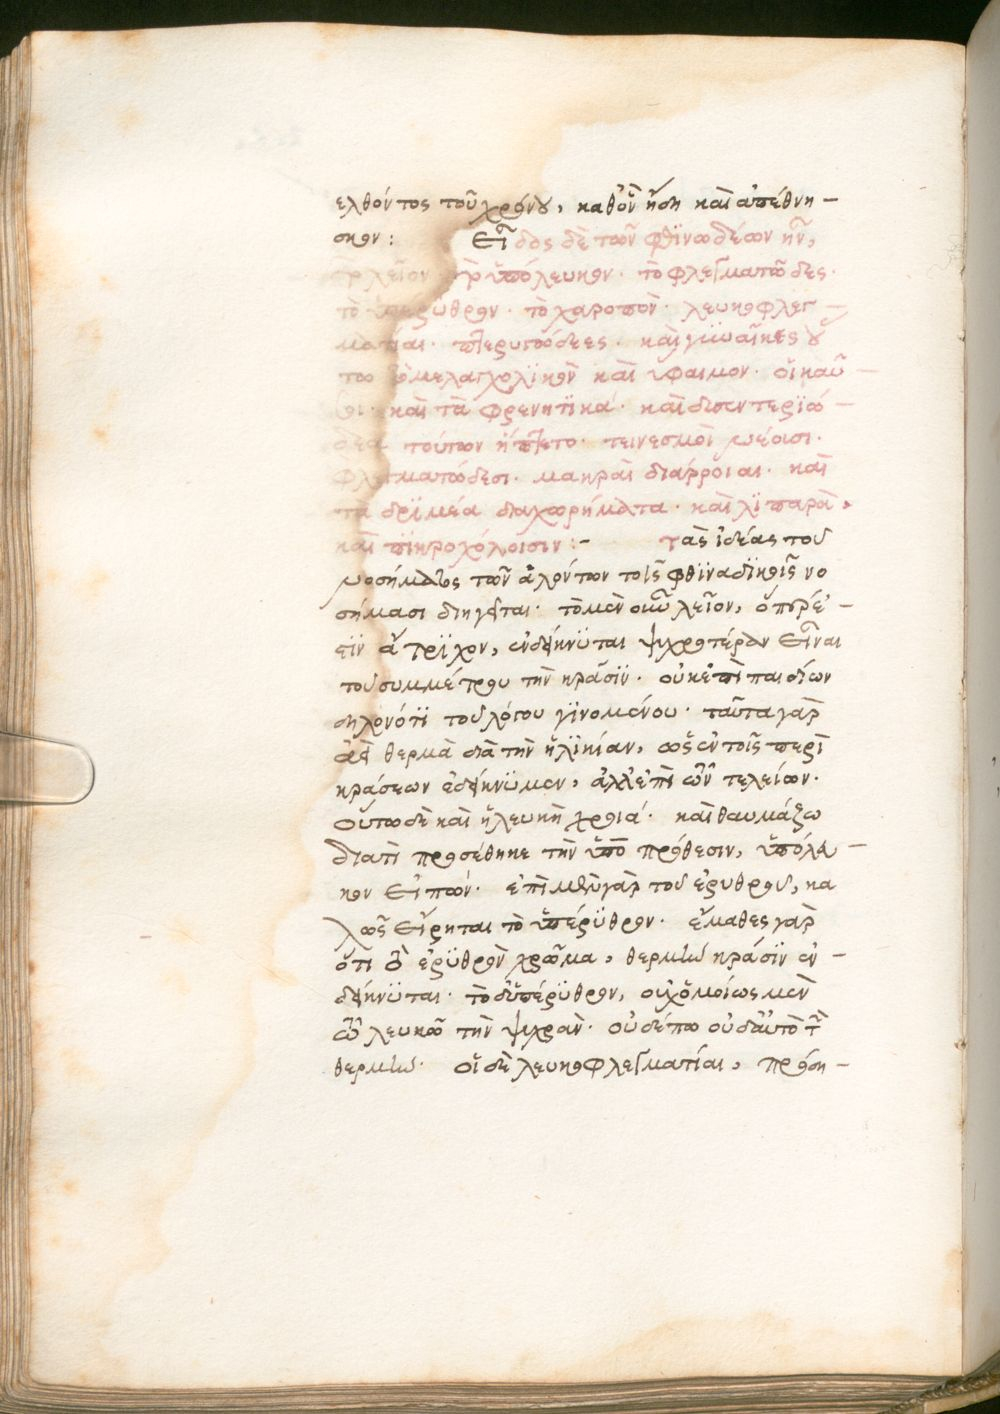 ελθόντος τοῦ χρόνου, καθ' ὃν ἤδη καὶ ἀπέθνη –
σκον : Εἶδος δὲ τῶν φθϊνωδέων ἦν,
τὸ λεῖον· τὸ ὑπόλευκον· τὸ φλεγματῶδες·
τὸ ὑπέρϋθρον· τὸ χαροπὸν· λευκοφλεγ –
ματίαι· πτερυγώδεες· καὶ γυναῖκες οὕ
τω τὸ μελαγχολϊκὸν καὶ ὕφαιμον· οἱ καῦ –
σοι· καὶ τὰ φρενητϊκά· καὶ δισεντερϊώ –
δεα τούτων ἥπτετο· τεινεσμοὶ νέοισι·
φλεγματώδεσι· μακραὶ διάρροιαι· καὶ
τὰ δρϊμέα διαχωρήματα· καὶ λϊπαρὰ,
καὶ πϊκροχόλοισιν :– τὰς ἰδέας τοῦ
νοσήματος τῶν ἁλόντων τοῖς φθϊναδϊκοῖς νο
σήμασι διηγεῖται· τὸ μὲν οὖν λεῖον, ὅπερ ἐ –
στϊν ἄτρϊχον, ἐνδείκνϋται ψυχροτέραν εἶναι
τοῦ συμμέτρου τὴν κρᾶσϊν· οὐκ ἐπὶ παιδίων
δηλονότϊ τοῦ λόγου γϊνομένου· ταῦτα γὰρ
ἀεὶ θερμὰ διὰ τὴν ἡλϊκίαν, ὡς ἐν τοῖς περὶ
κράσεων ἐδείκνϋμεν, ἀλλ' ἐπὶ τῶν τελείων·
οὕτω δὲ καὶ ἡ λευκὴ χροιά· καὶ θαυμάζω
διατὶ προσέθηκε τὴν ὑπὸ πρόθεσιν, ὑπόλευ –
κον εἰπών· ἐπὶ μὲν γὰρ τοῦ ἐρυθροῦ, κα
λῶς εἴρηται τὸ ὑπέρϋθρον· ἔμαθες γὰρ
ὅτι τὸ ἐρϋθρὸν χρῶμα, θερμὴν κρᾶσϊν ἐν –
δείκνϋται· τὸ δ' ὑπέρϋθρον, οὐχ ὁμοίως μὲν
τῷ λευκῷ τὴν ψυχρὰν· οὐδέπω οὐδ' αὐτὸ τὴν
θερμὴν· οἱ δὲ λευκοφλεγματίαι, πρόδη –